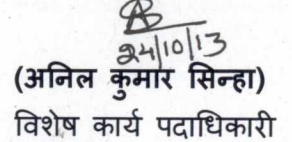 24/10/13
(अनिल कुमार सिन्हा)
विशेष कार्य पदाधिकारी